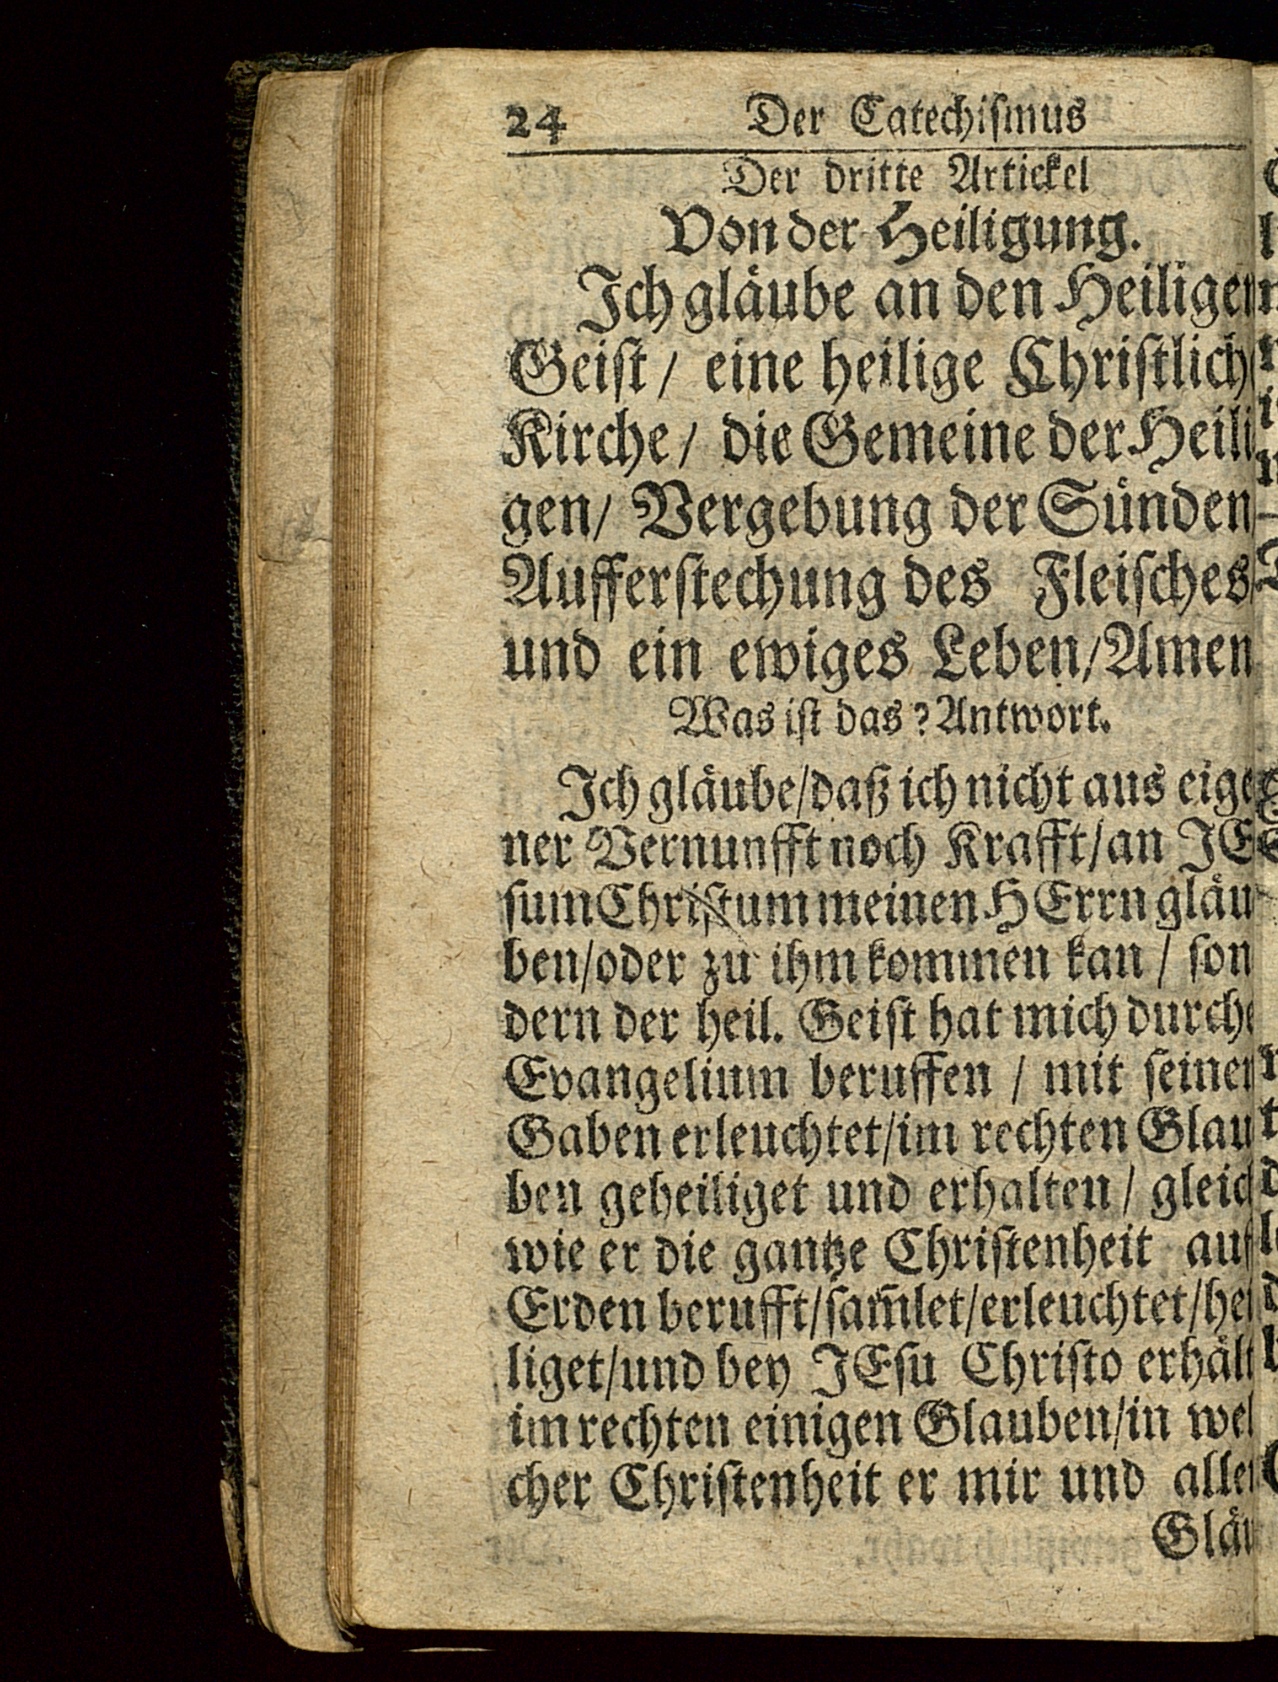 24 Der Catechismus
Der dritte Artickel
Von der Heiligung.
Ich gläube an den Heiligen
Geist/ eine heilige Christlich
Kirche/ die Gemeine der Heili
gen/ Vergebung der Sünden
Aufferstechung des Fleisches
und ein ewiges Leben/Amen
Was ist das? Antwort.
Ich gläube/daß ich nicht aus eige
ner Vernunfft noch Krafft/an JE
sum Christum meinen HErrn gläu
ben/oder zu ihm kommen kan / son
dern der heil. Geist hat mich durch
Evangelium beruffen / mit seinen
Gaben erleuchtet/im rechten Glau
ben geheiliget und erhalten / gleich
wie er die gantze Christenheit auf
Erden berufft/sam̃let/erleuchtet/hei
liget/und bey JEsu Christo erhält
im rechten einigen Glauben/in wel
cher Christenheit er mir und allen
Gläu